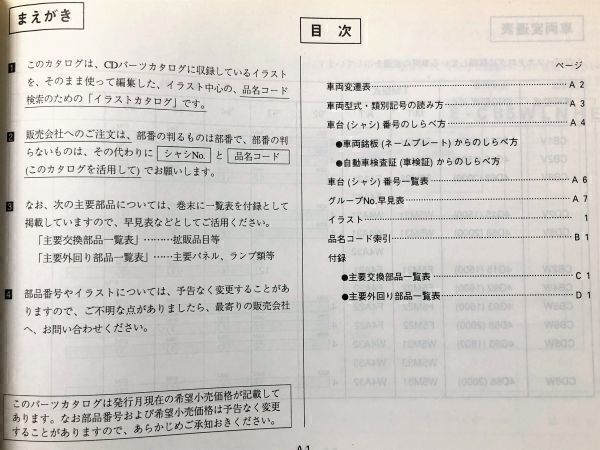 まえがき
1 このカタログは、CDパーツカタログに収録しているイラスト
を、そのまま使って編集した、イラスト中心の、品名コード
検索のための「イラストカタログ」です。
2 販売会社へのご注文は、部番の判るものは部番で、部番の判
らないものは、その代わりに シャシNo. と 品名コード
(このカタログを活用して) でお願いします。
3 なお、次の主要部品については、巻末に一覧表を付録として
掲載していますので、早見表などとしてご活用ください。
「主要交換部品一覧表」………拡販品目等
「主要外回り部品一覧表」……主要パネル、ランプ類等
4 部品番号やイラストについては、予告なく変更することがあ
りますので、ご不明な点がありましたら、最寄りの販売会社
へ、お問い合わせください。
このパーツカタログは発行月現在の希望小売価格が記載して
あります。なお部品番号および希望小売価格は予告なく変更
することがありますので、あらかじめご承知おきください。
目 次
ページ
車両変遷表 A 2
車両型式・類別記号の読み方 A 3
車台 (シャシ) 番号のしらべ方 A 4
●車両銘板 (ネームプレート) からのしらべ方
●自動車検査証 (車検証) からのしらべ方
車台 (シャシ) 番号一覧表 A 6
グループNo.早見表 A 7
イラスト 1
品名コード索引 B 1
付録
●主要交換部品一覧表 C 1
●主要外回り部品一覧表 D 1
A 1